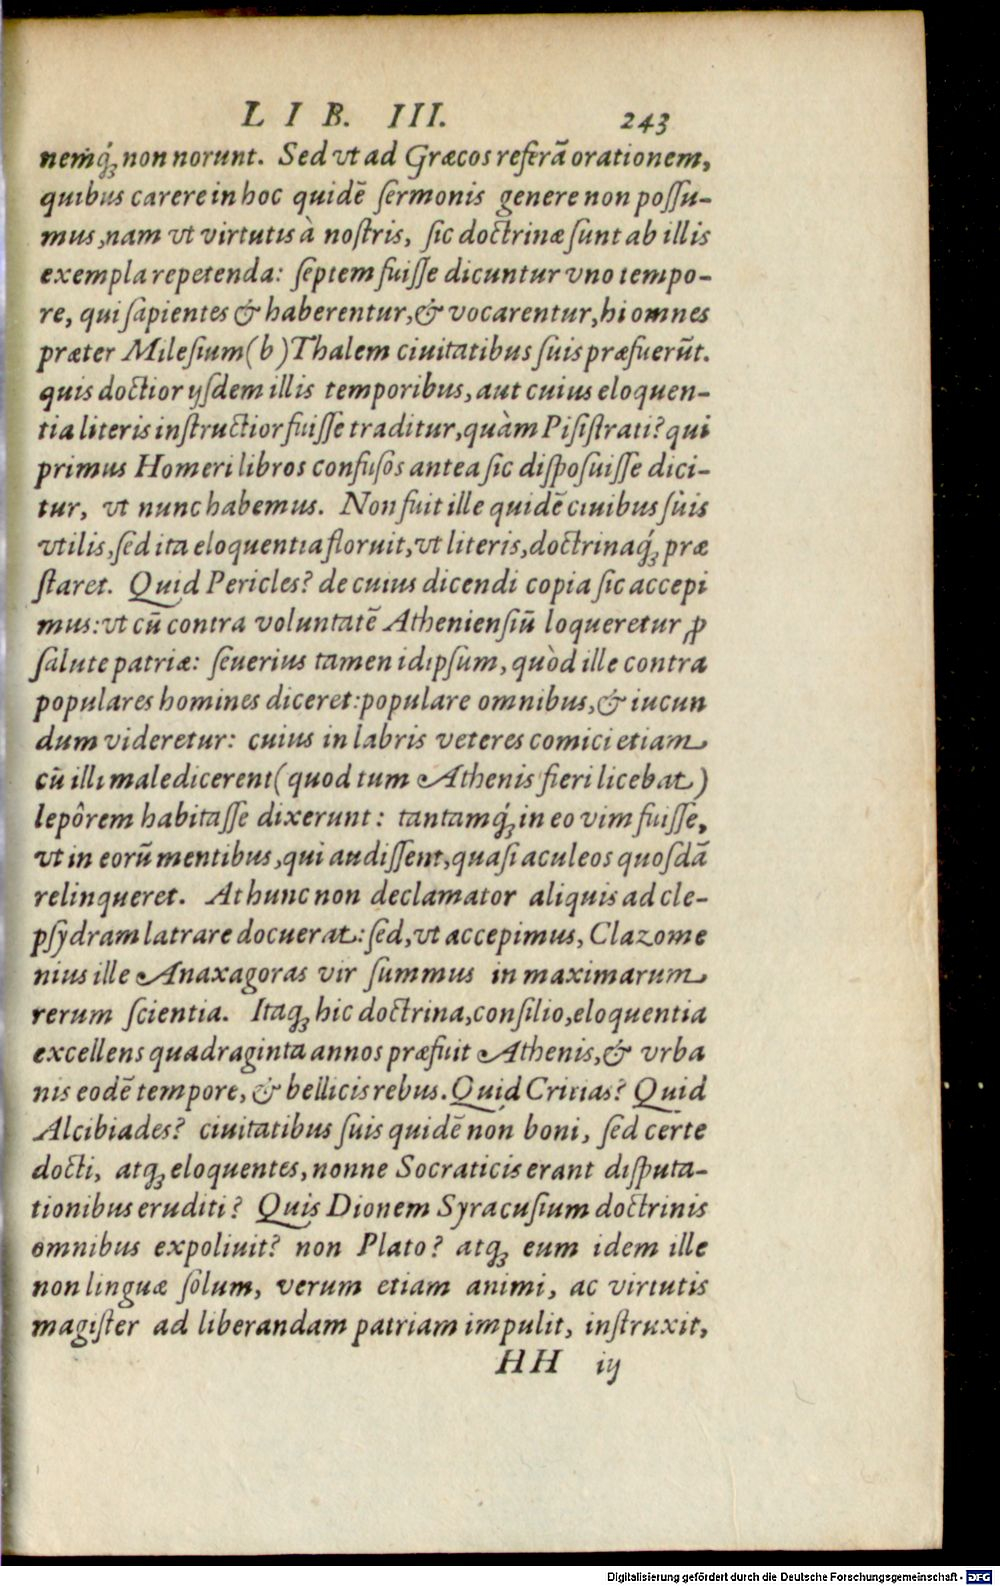 LIB. III. 243
nemq́; non norunt. Sed vt ad Græcos referā orationem,
quibus carere in hoc quidē ſermonis genere non poſſu-
mus, nam vt virtutis à noſtris, ſic doctrinæ ſunt ab illis
exempla repetenda: ſeptem fuiſſe dicuntur vno tempo-
re, qui ſapientes & haberentur, & vocarentur, hi omnes
præter Mileſium (b) Thalem ciuitatibus ſuis præfuerūt.
quis doctior ijſdem illis temporibus, aut cuius eloquen-
tia literis inſtructior fuiſſe traditur, quàm Piſiſtrati? qui
primus Homeri libros confuſos antea ſic diſpoſuiſſe dici-
tur, vt nunc habemus. Non fuit ille quidē ciuibus ſuis
vtilis, ſed ita eloquentia floruit, vt literis, doctrinaq́; præ
ſtaret. Quid Pericles? de cuius dicendi copia ſic accepi
mus: vt cū contra voluntatē Athenienſiū loqueretur ꝓ
ſalute patriæ: ſeuerius tamen id ipſum, quòd ille contra
populares homines diceret: populare omnibus, & iucun
dum videretur: cuius in labris veteres comici etiam
cū illi maledicerent (quod tum Athenis fieri licebat)
lepôrem habitaſſe dixerunt: tantamq́; in eo vim fuiſſe,
vt in eorū mentibus, qui audiſſent, quaſi aculeos quoſdā
relinqueret. At hunc non declamator aliquis ad cle-
pſydram latrare docuerat: ſed, vt accepimus, Clazome
nius ille Anaxagoras vir ſummus in maximarum
rerum ſcientia. Itaq; hic doctrina, conſilio, eloquentia
excellens quadraginta annos præfuit Athenis, & vrba
nis eodē tempore, & bellicis rebus. Quid Critias? Quid
Alcibiades? ciuitatibus ſuis quidē non boni, ſed certe
docti, atq; eloquentes, nonne Socraticis erant diſputa-
tionibus eruditi? Quis Dionem Syracuſium doctrinis
omnibus expoliuit? non Plato? atq; eum idem ille
non linguæ ſolum, verum etiam animi, ac virtutis
magiſter ad liberandam patriam impulit, inſtruxit,
HH iij
Digitalisierung gefördert durch die Deutsche Forschungsgemeinschaft - DFG